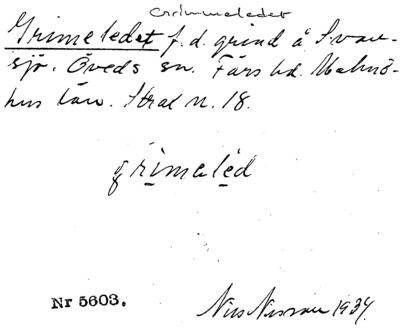 Grimeledet
Grimeledet f. d. grind å Svan-
sjö. Öveds sn. Färs hd. Malmö-
hus län. Stral n. 18.
grimaled
Nr 5603.
Nils Nilsson 1934.